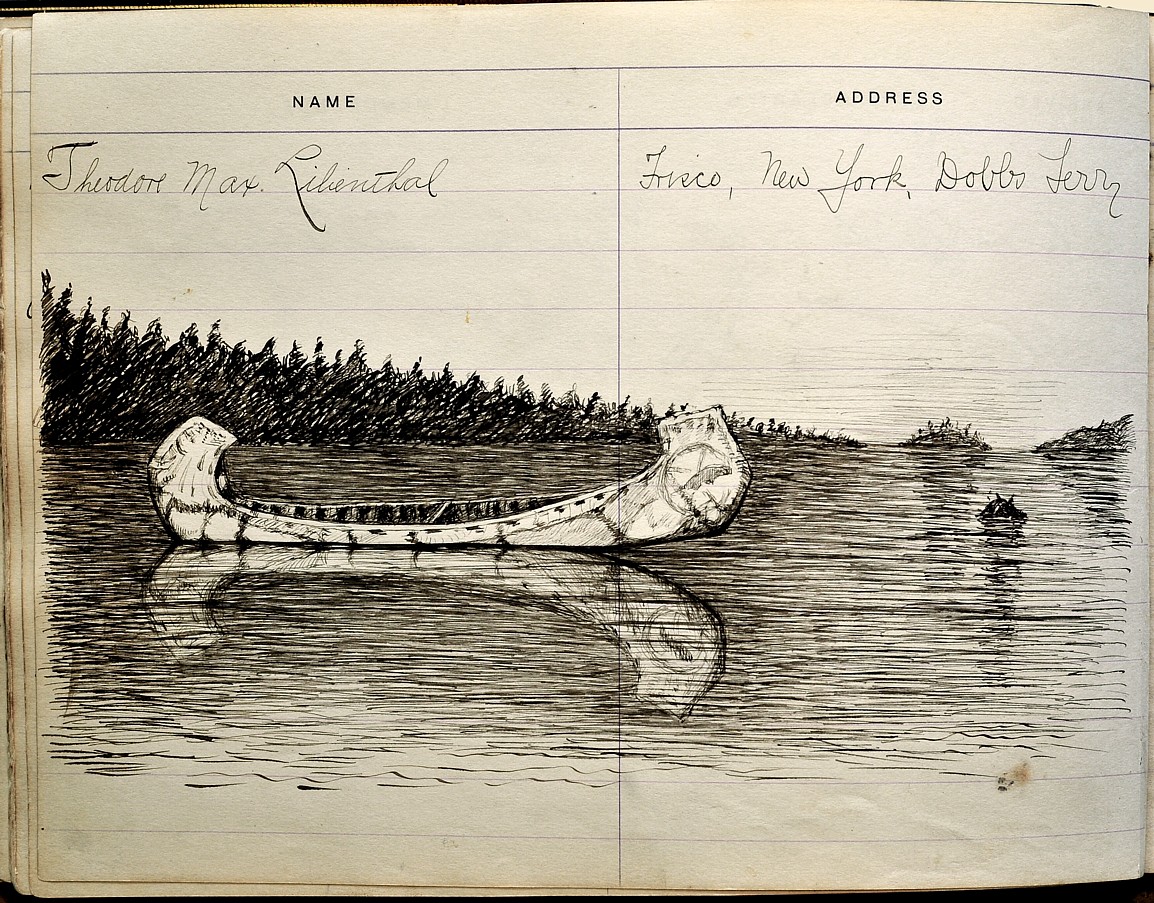 NAME ADDRESS
Theodore Max. Lilienthal Frisco, New York, Dobbs Ferry